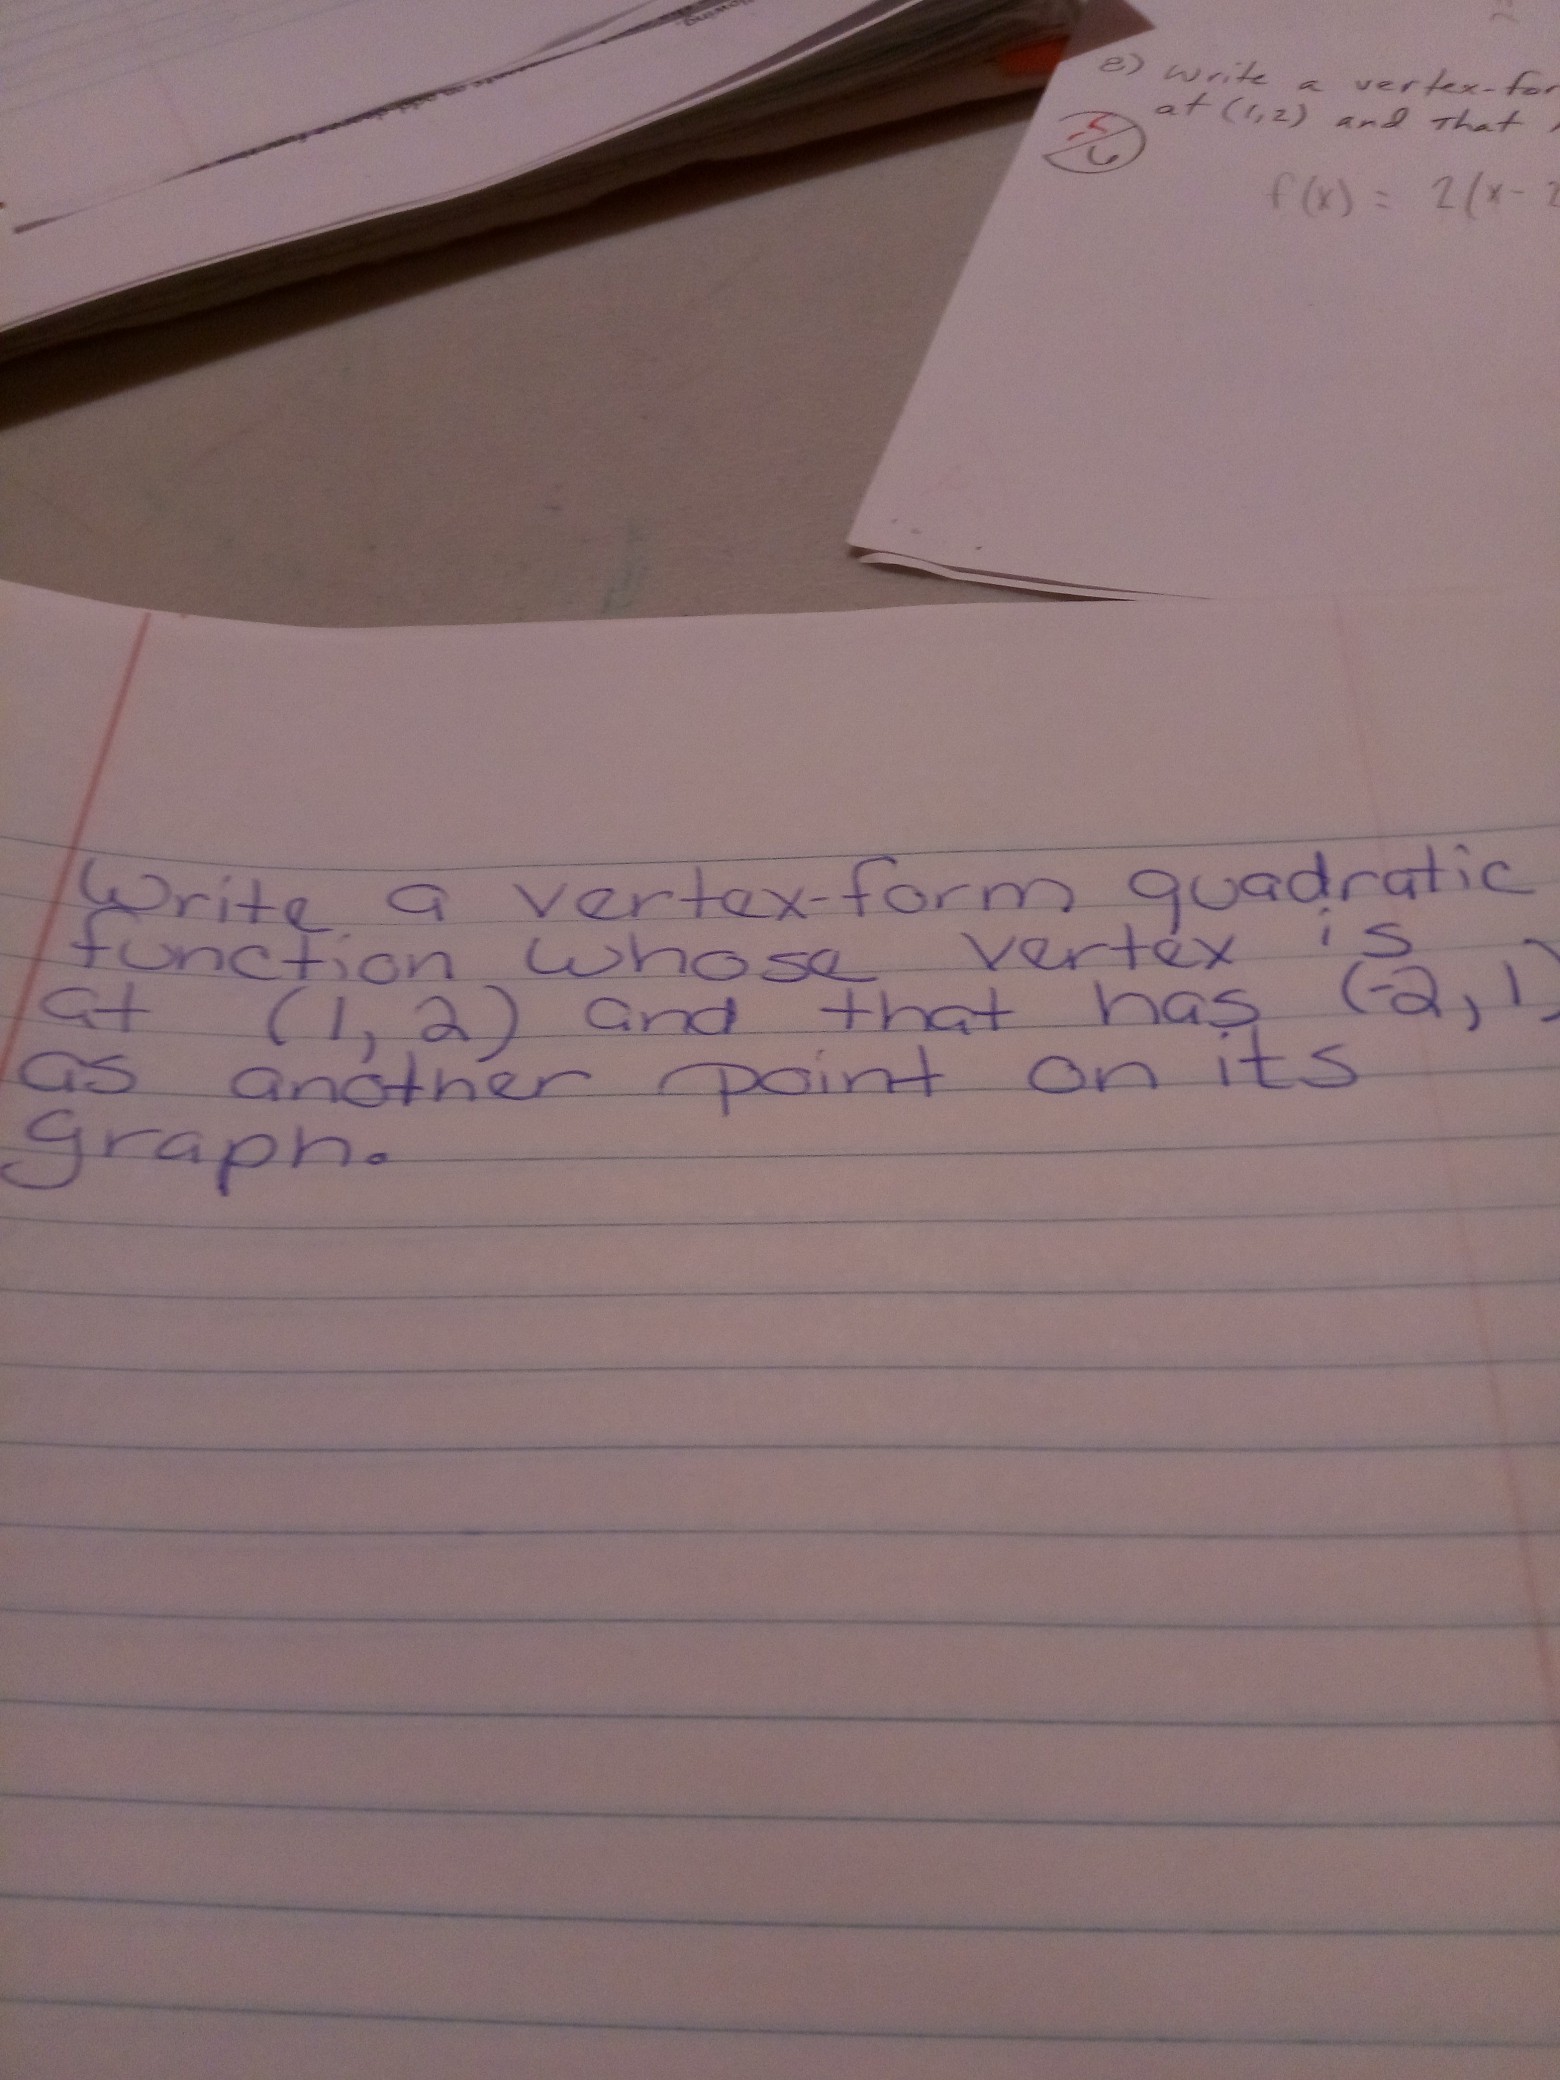 8) Write a vertex-for
at (1,2) and That
6
f(x) = 2(x-2
Write a vertex-form quadratic
function whose vertex is
at (1, 2) and that has (-2, 1)
as another point on its
graph.